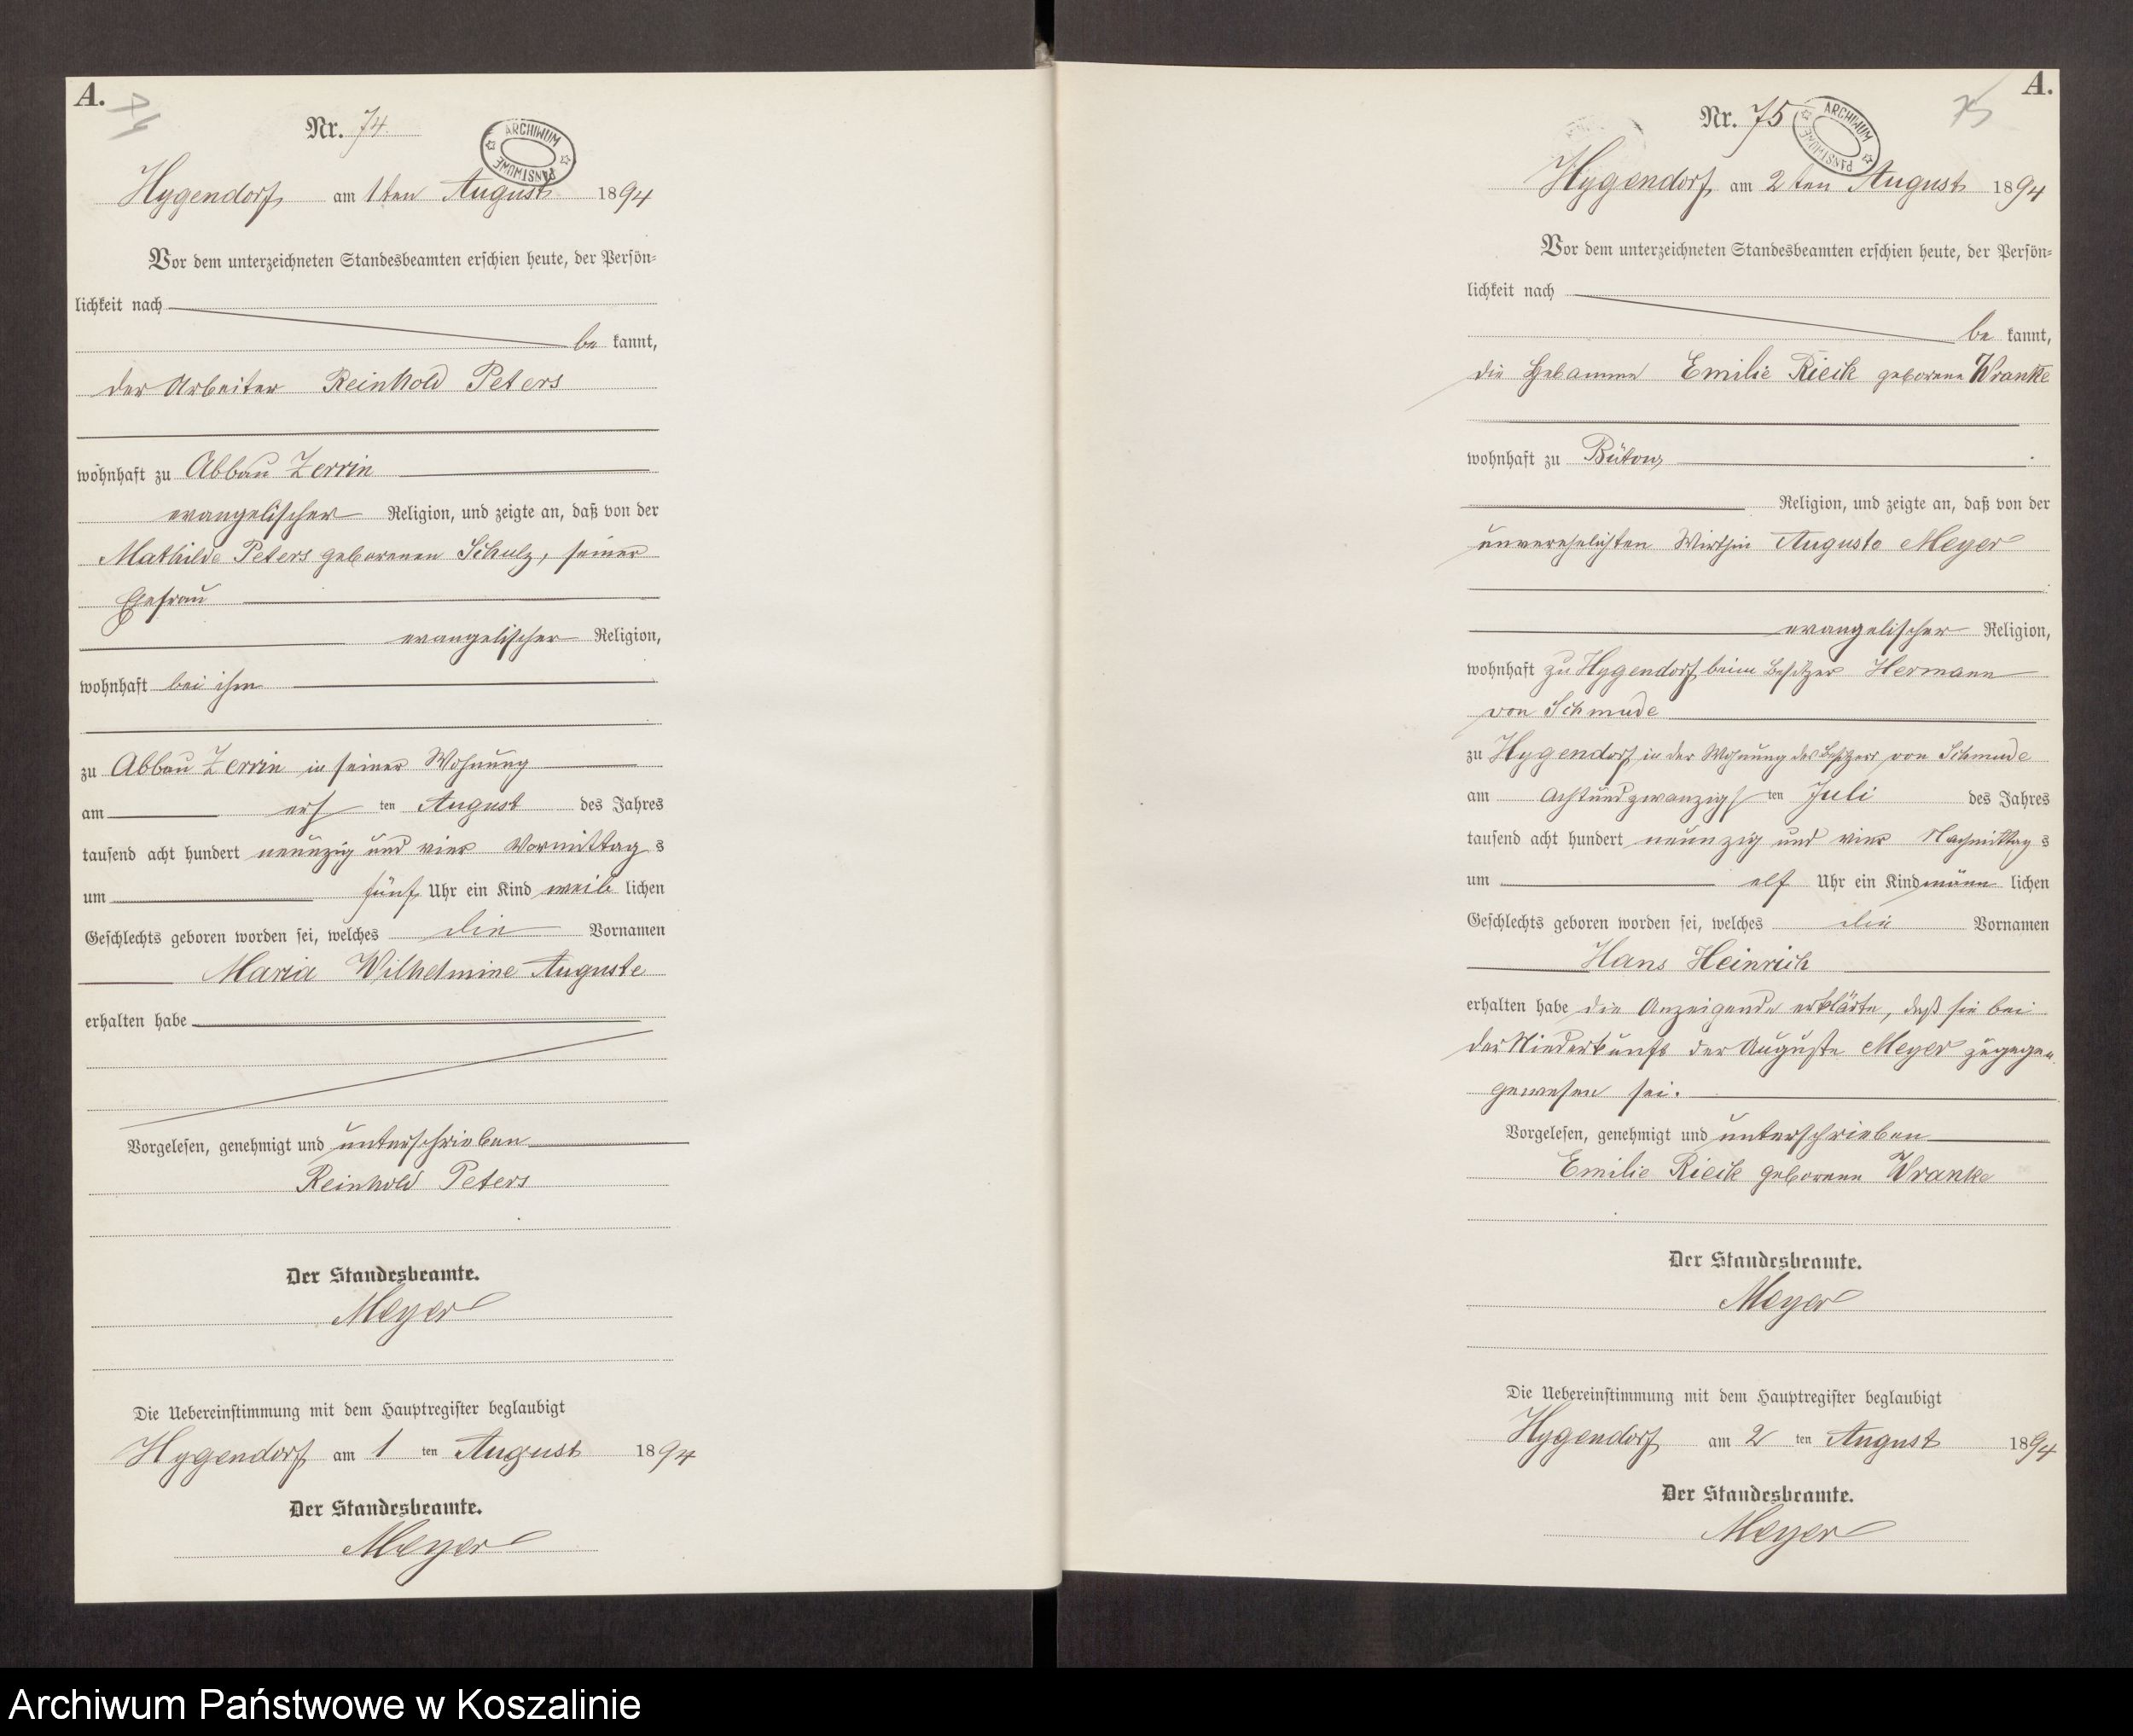 A.
74
Nr. 74.
ARCHIWUM PAŃSTWOWE
Hygendorf am 1ten August 1894
Vor dem unterzeichneten Standesbeamten erschien heute, der Persön-
lichkeit nach
be kannt,
der Arbeiter Reinhold Peters
wohnhaft zu Abbau Zerrin
evangelischer Religion, und zeigte an, daß von der
Mathilde Peters geborenen Schulz, seiner
Ehefrau
evangelischer Religion,
wohnhaft bei ihm
zu Abbau Zerrin in seiner Wohnung
am erst ten August des Jahres
tausend acht hundert neunzig und vier Vormittag s
um fünf Uhr ein Kind weib lichen
Geschlechts geboren worden sei, welches die Vornamen
Maria Wilhelmine Auguste
erhalten habe
Vorgelesen, genehmigt und unterschrieben
Reinhold Peters
Der Standesbeamte.
Meyer
Die Uebereinstimmung mit dem Hauptregister beglaubigt
Hygendorf am 1 ten August 1894
Der Standesbeamte.
Meyer
A.
75
Nr. 75
ARCHIWUM PAŃSTWOWE
Hygendorf am 2ten August 1894
Vor dem unterzeichneten Standesbeamten erschien heute, der Persön-
lichkeit nach
be kannt,
die Hebamme Emilie Rieck geborene Wranke
wohnhaft zu Bütow
Religion, und zeigte an, daß von der
unverehelichten Wirthin Auguste Meyer
evangelischer Religion,
wohnhaft zu Hygendorf beim Besitzer Hermann
von Schmude
zu Hygendorf in der Wohnung des Besitzers von Schmude
am achtundzwanzigs ten Juli des Jahres
tausend acht hundert neunzig und vier Nachmittag s
um elf Uhr ein Kind männ lichen
Geschlechts geboren worden sei, welches die Vornamen
Hans Heinrich
erhalten habe die Anzeigende erklärte, daß sie bei
der Niederkunft der Auguste Meyer zugegen
gewesen sei.
Vorgelesen, genehmigt und unterschrieben
Emilie Rieck geborene Wranke
Der Standesbeamte.
Meyer
Die Uebereinstimmung mit dem Hauptregister beglaubigt
Hygendorf am 2 ten August 1894
Der Standesbeamte.
Meyer
Archiwum Państwowe w Koszalinie